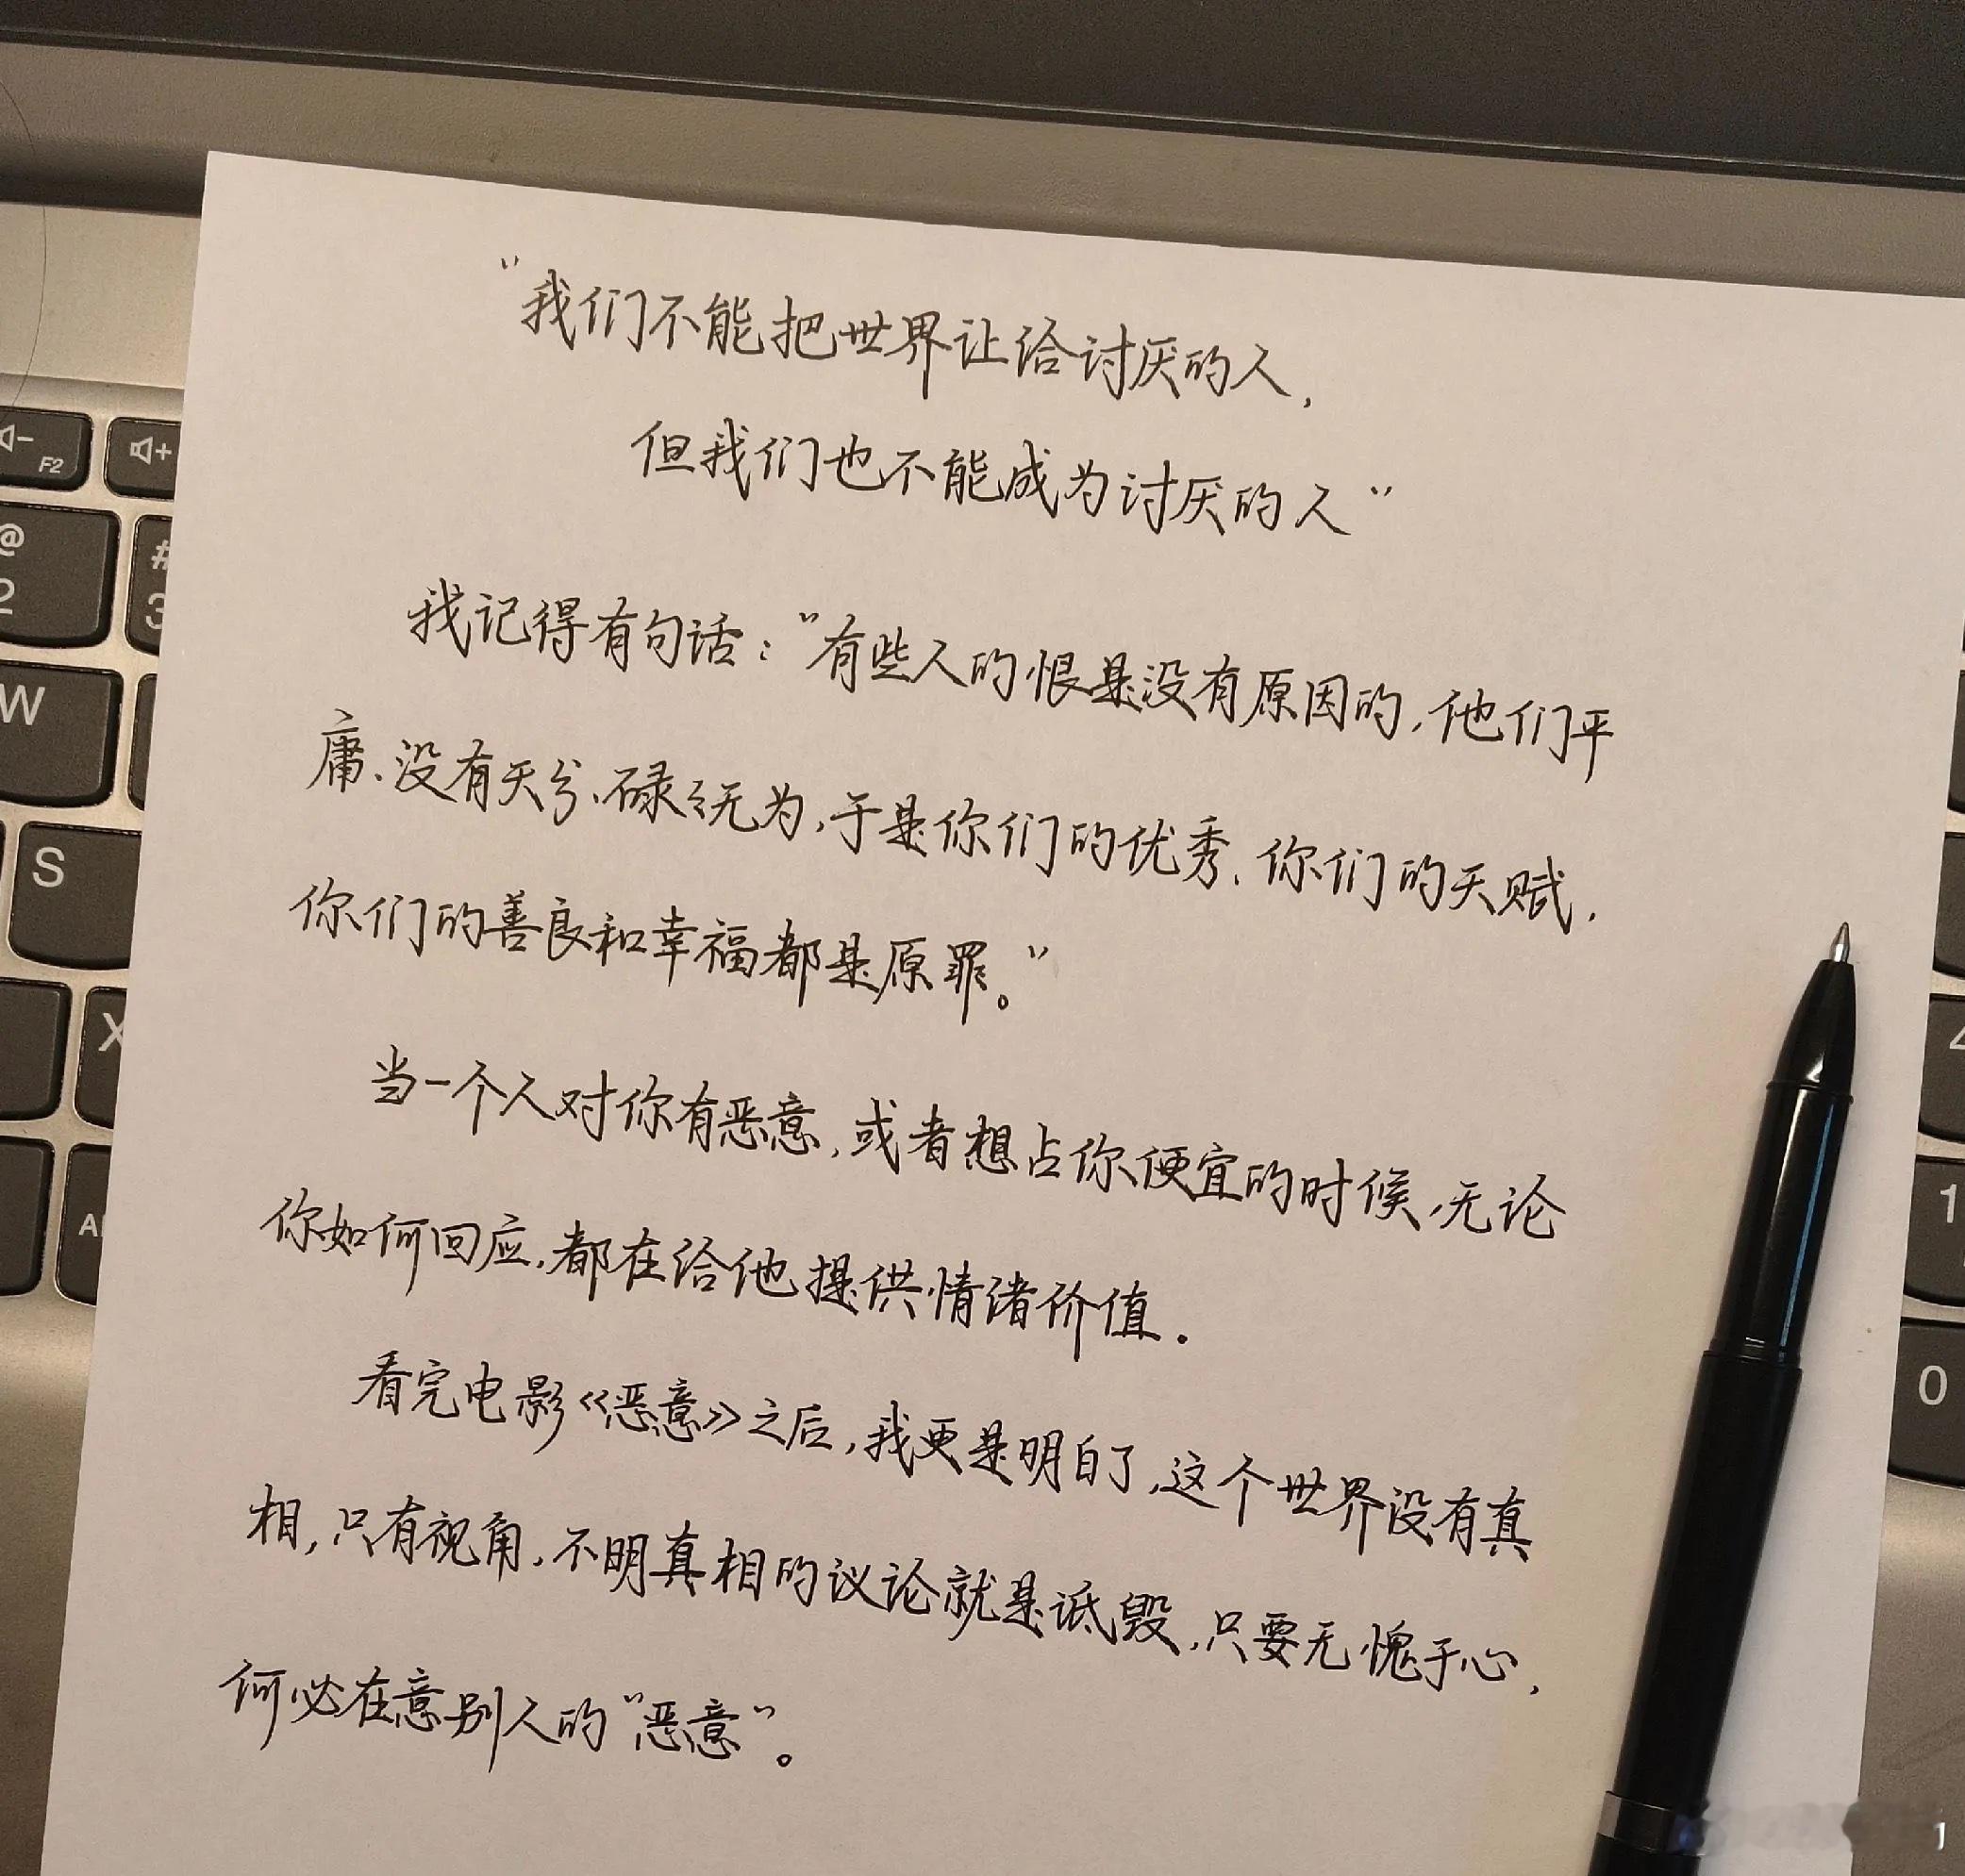 “我们不能把世界让给讨厌的人，
但我们也不能成为讨厌的人”
我记得有句话：“有些人的恨是没有原因的，他们平
庸、没有天分、碌々无为，于是你们的优秀、你们的天赋，
你们的善良和幸福都是原罪。”
当一个人对你有恶意，或者想占你便宜的时候，无论
你如何回应，都在给他提供情绪价值.
看完电影《恶意》之后，我更是明白了，这个世界没有真
相，只有视角，不明真相的议论就是诋毁，只要无愧于心，
何必在意别人的“恶意”。
F2
@
2
#
3
W
S
X
4
1
0